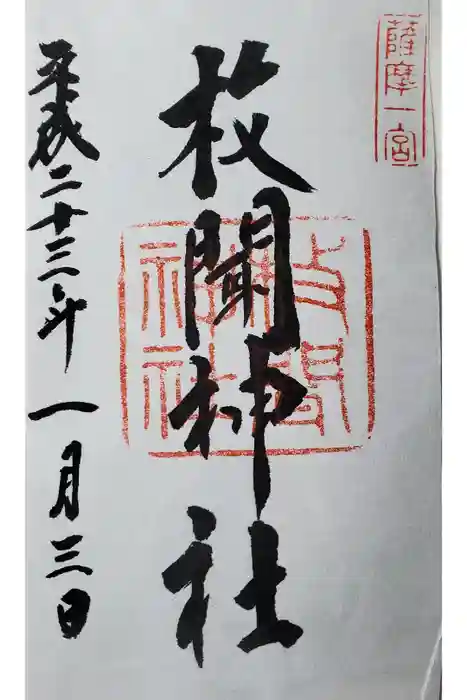 薩摩一宮
枚聞神社
枚聞神社
平成二十三年一月三日